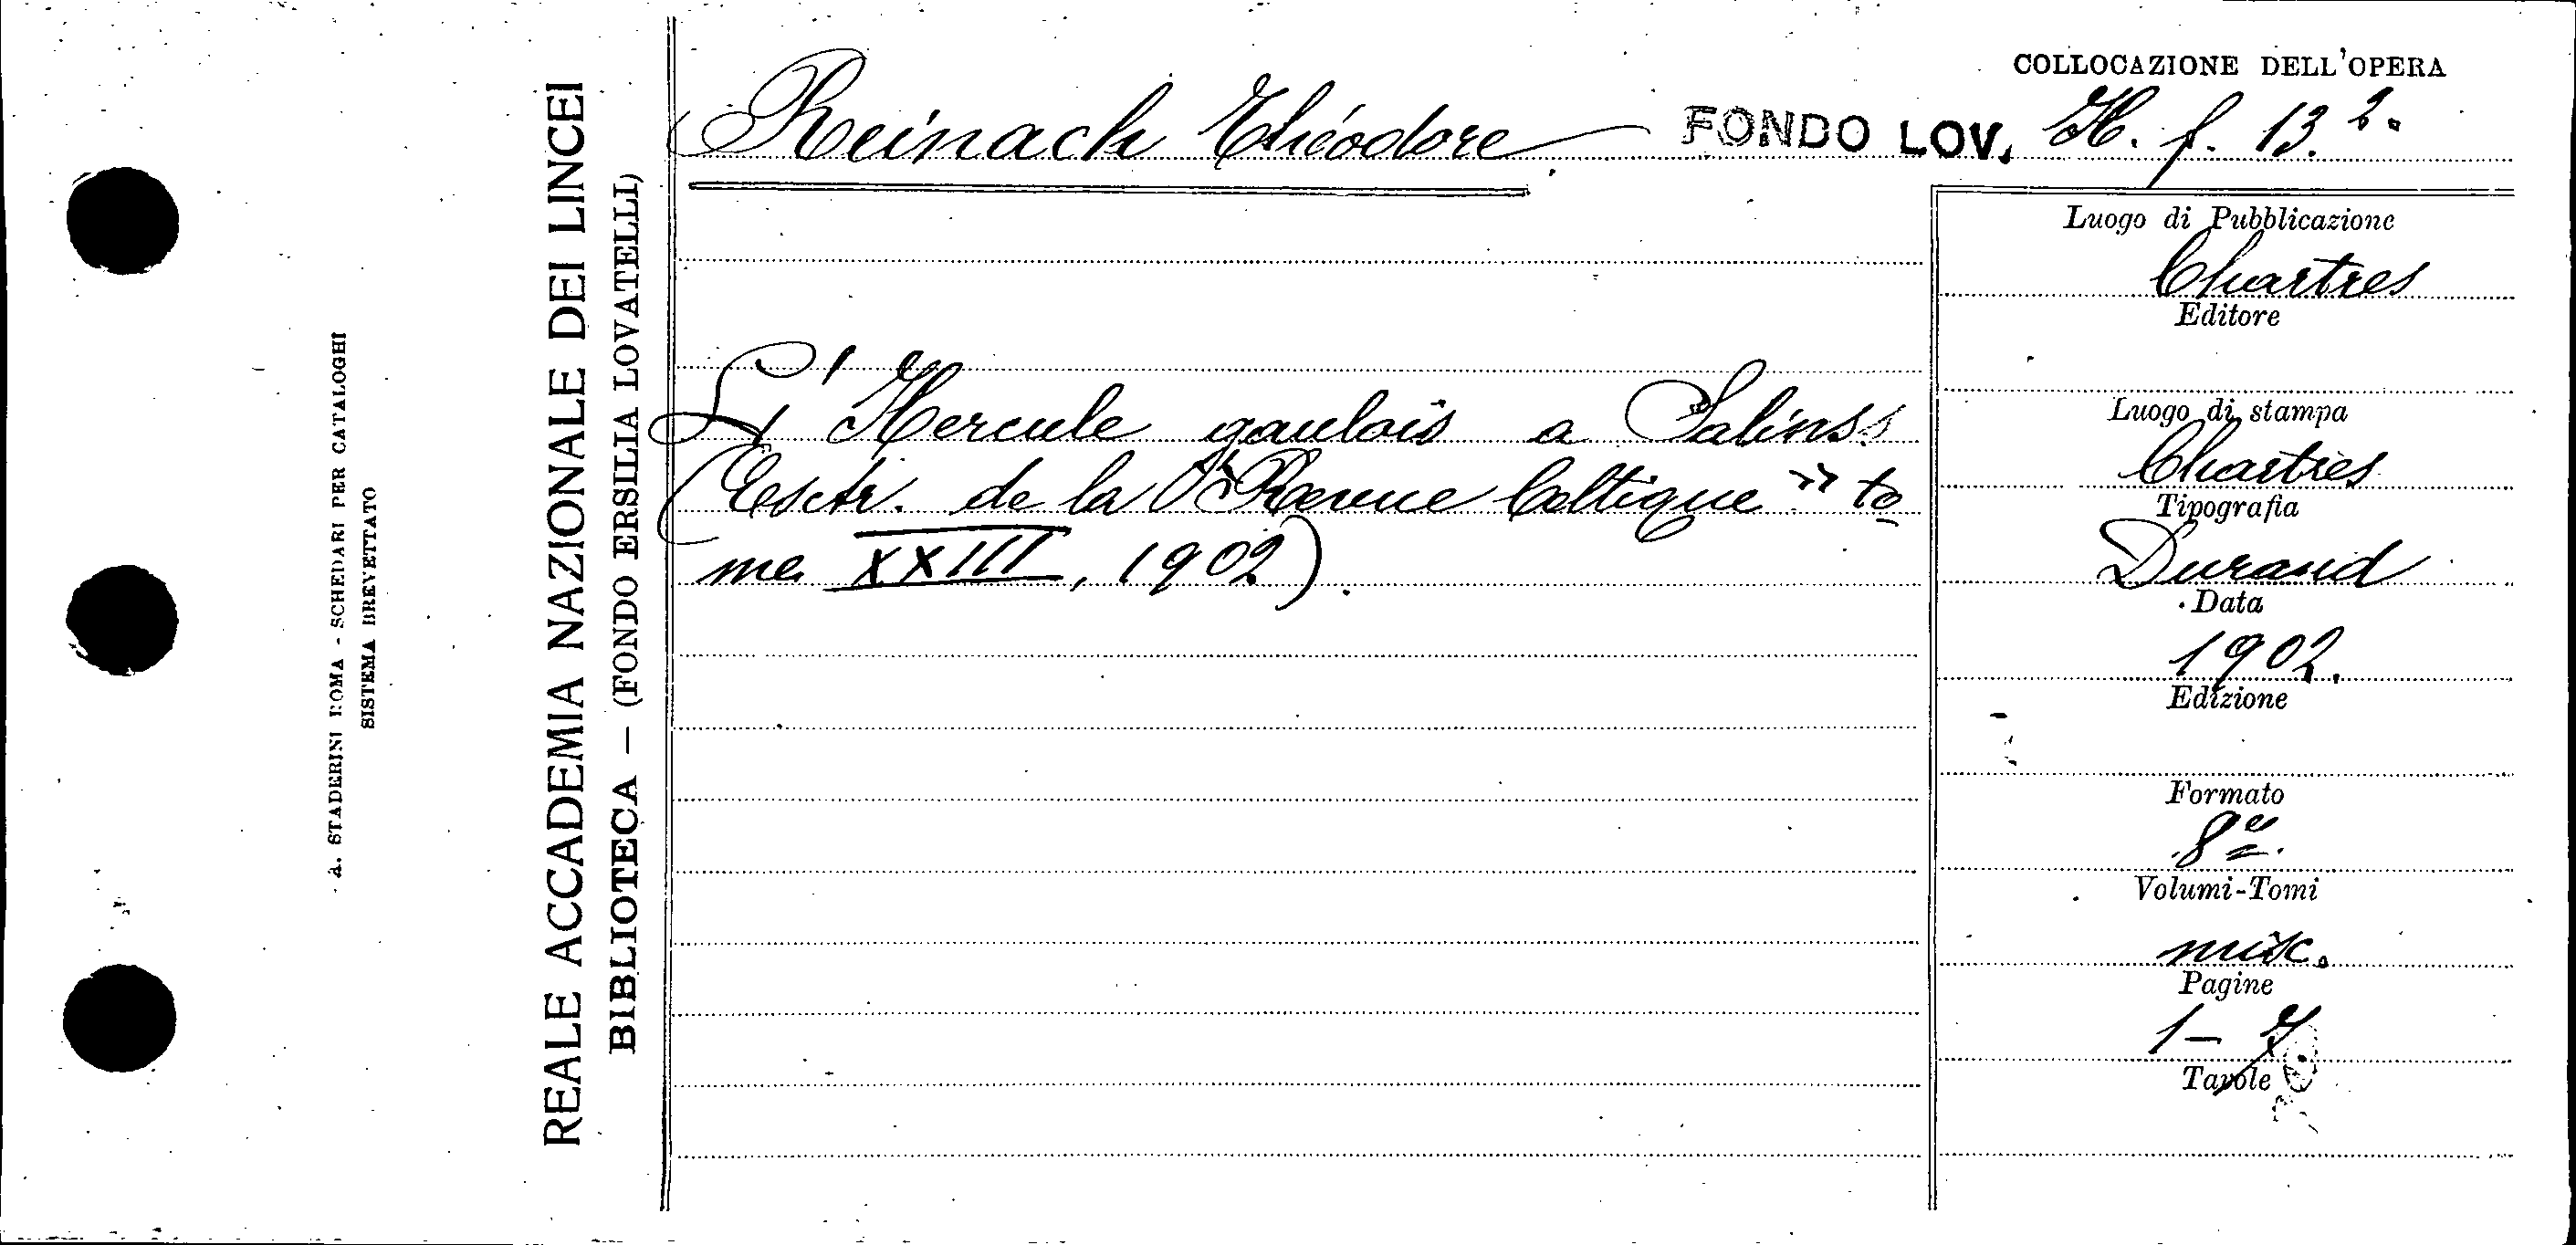 COLLOCAZIONE DELL'OPERA
Reinach Théodore FONDO LOV. H. f. 13.2.
L'Hercule gaulois a Salins
(Esctr. de la "Revue Celtique" to
me XXIII, 1902).
Luogo di Pubblicazione
Chartres
Editore
Luogo di stampa
Chartres
Tipografia
Durand
Data
1902.
Edizione
Formato
8º.
Volumi-Tomi
misc.
Pagine
1-7
Tavole
REALE ACCADEMIA NAZIONALE DEI LINCEI
BIBLIOTECA — (FONDO ERSILIA LOVATELLI)
A. STADERINI ROMA - SCHEDARI PER CATALOGHI
SISTEMA BREVETTATO